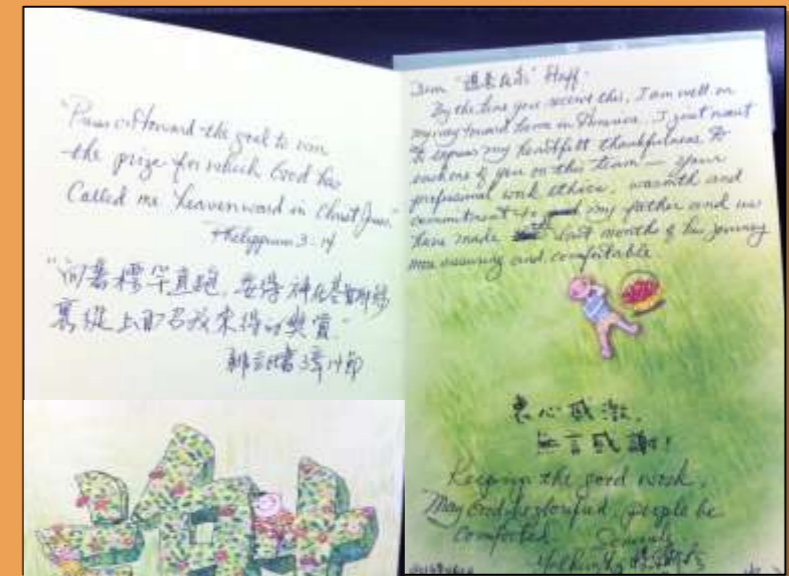 "Press on toward the goal to win
the prize for which God has
Called me heavenward in Christ Jesus"
Philippians 3-14
"向着標竿直跑,要得神在基督耶穌
裏從上面召我來得的獎賞."
腓立比書 3章14節
Dear "
" Staff-
By the time you receive this, I am well on
my way toward home in America. I just want
to express my heartfelt thankfulness to
each one of you on this team — your
professional work ethics, warmth and
commitment to my father and us
have made last months of his journey
more assuring and comfortable.
衷心感激,
無言感謝!
Keep up the good work,
May God be glorified, people be
comforted. Sincerely